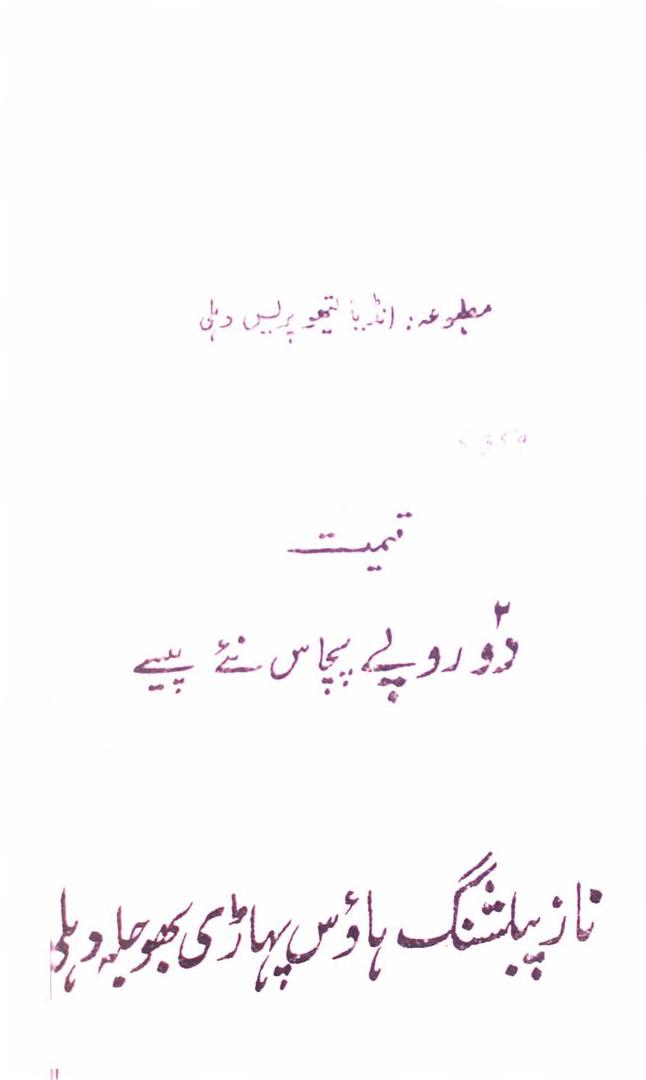 مطبوعہ: انڈیا لیتھو پریس دہلی
5359
قیمت
۲
دو روپے پچاس نئے پیسے
ناز پبلشنگ ہاؤس پہاڑی بھوجلہ دہلی